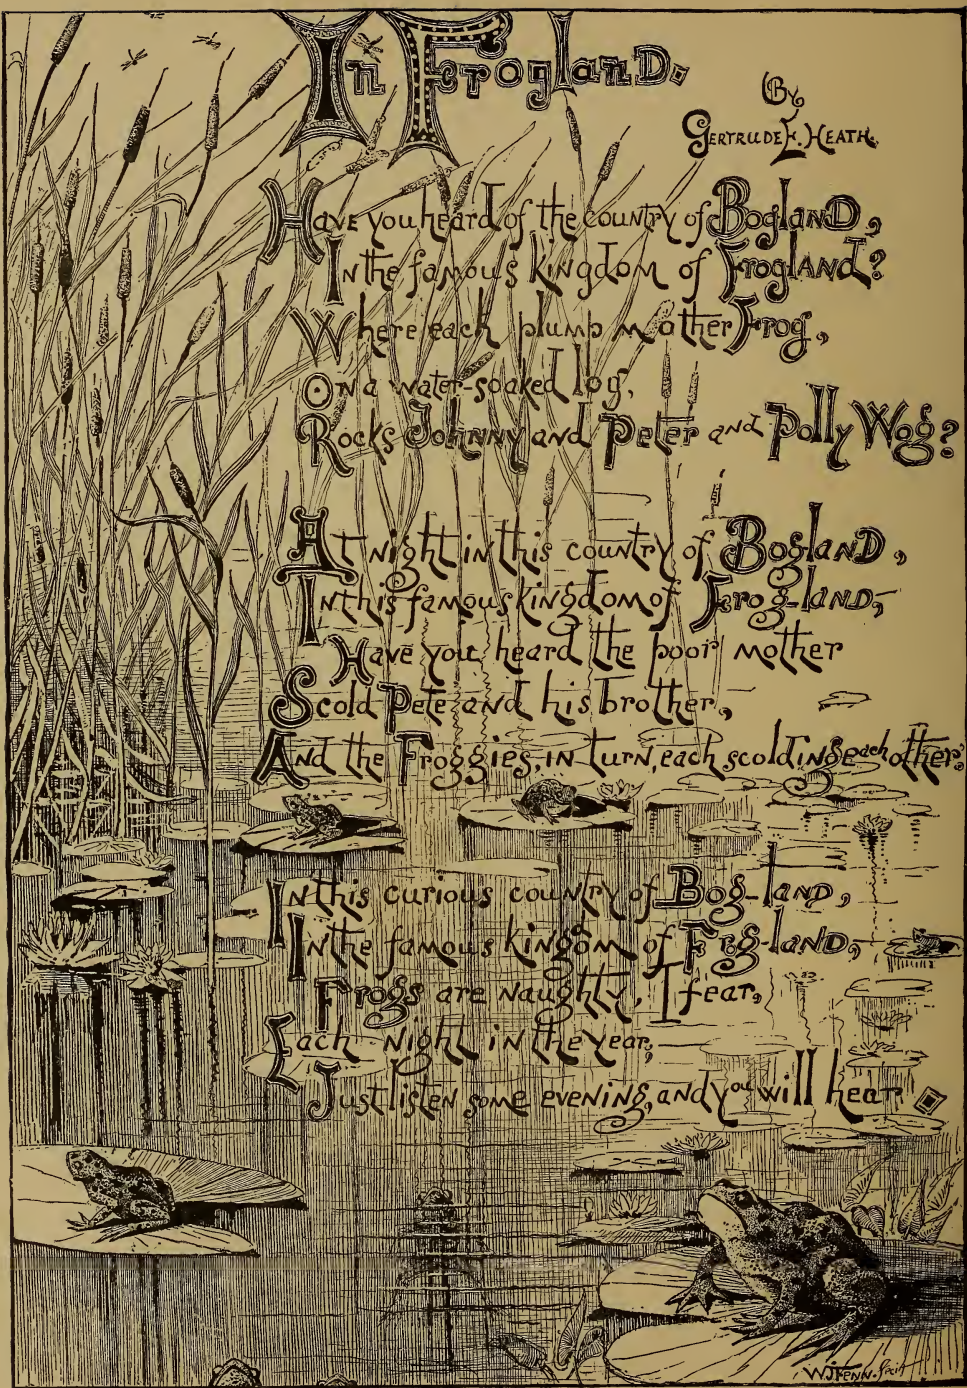 In Frogland.
By
Gertrude E. Heath.
Have you heard of the country of Bogland,
In the famous kingdom of Frogland?
Where each plump mother Frog,
On a water-soaked log,
Rocks Johnny and Peter and Polly Wog?
At night in this country of Bogland,
In this famous kingdom of Frog-land,-
Have you heard the poor mother
Scold Pete and his brother,
And the Froggies, in turn, each scolding each other?
In this curious country of Bog-land,
In the famous kingdom of Frog-land,-
Frogs are naughty, I fear,
Each night in the year;
Just listen some evening, and you will hear.
W.J. Fenn.